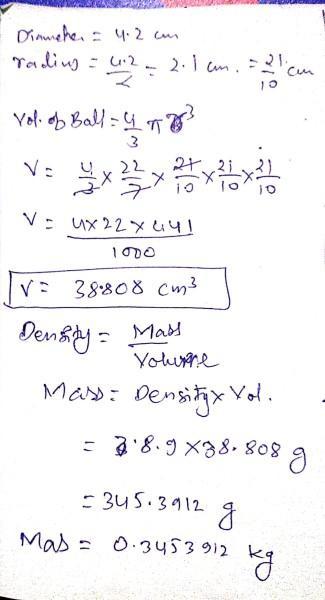 Diameter = 4.2 cm
radius = 4.2/2 = 2.1 cm. = 21/10 cm
Vol. of Ball = 4/3 π r³
V = 4/3 × 22/7 × 21/10 × 21/10 × 21/10
V = 4×22×441/1000
V = 38.808 cm³
Density = Mass/Volume
Mass = Density × Vol.
= 8.9 × 38.808 g
= 345.3912 g
Mas = 0.3453912 kg